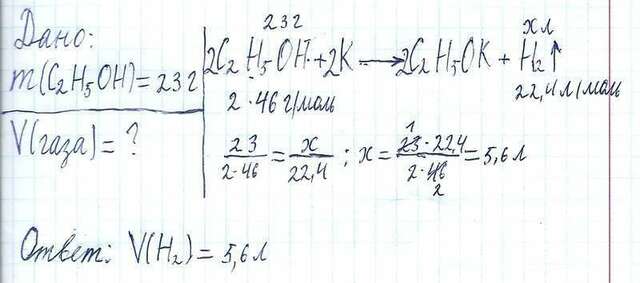 Дано:
m(C₂H₅OH)=23г
V(газа)=?
23г
хл
2C₂H₅OH+2K→2C₂H₅OK+H₂↑
2·46г/моль
22,4л/моль
23/2·46=х/22,4; х=23·22,4/2·46=5,6л
1
2
Ответ: V(H₂)=5,6л